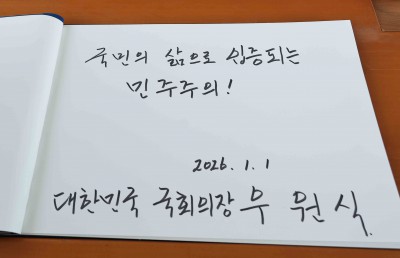 국민의 삶으로 입증되는
민주주의!
2026. 1. 1
대한민국 국회의장 우 원 식.